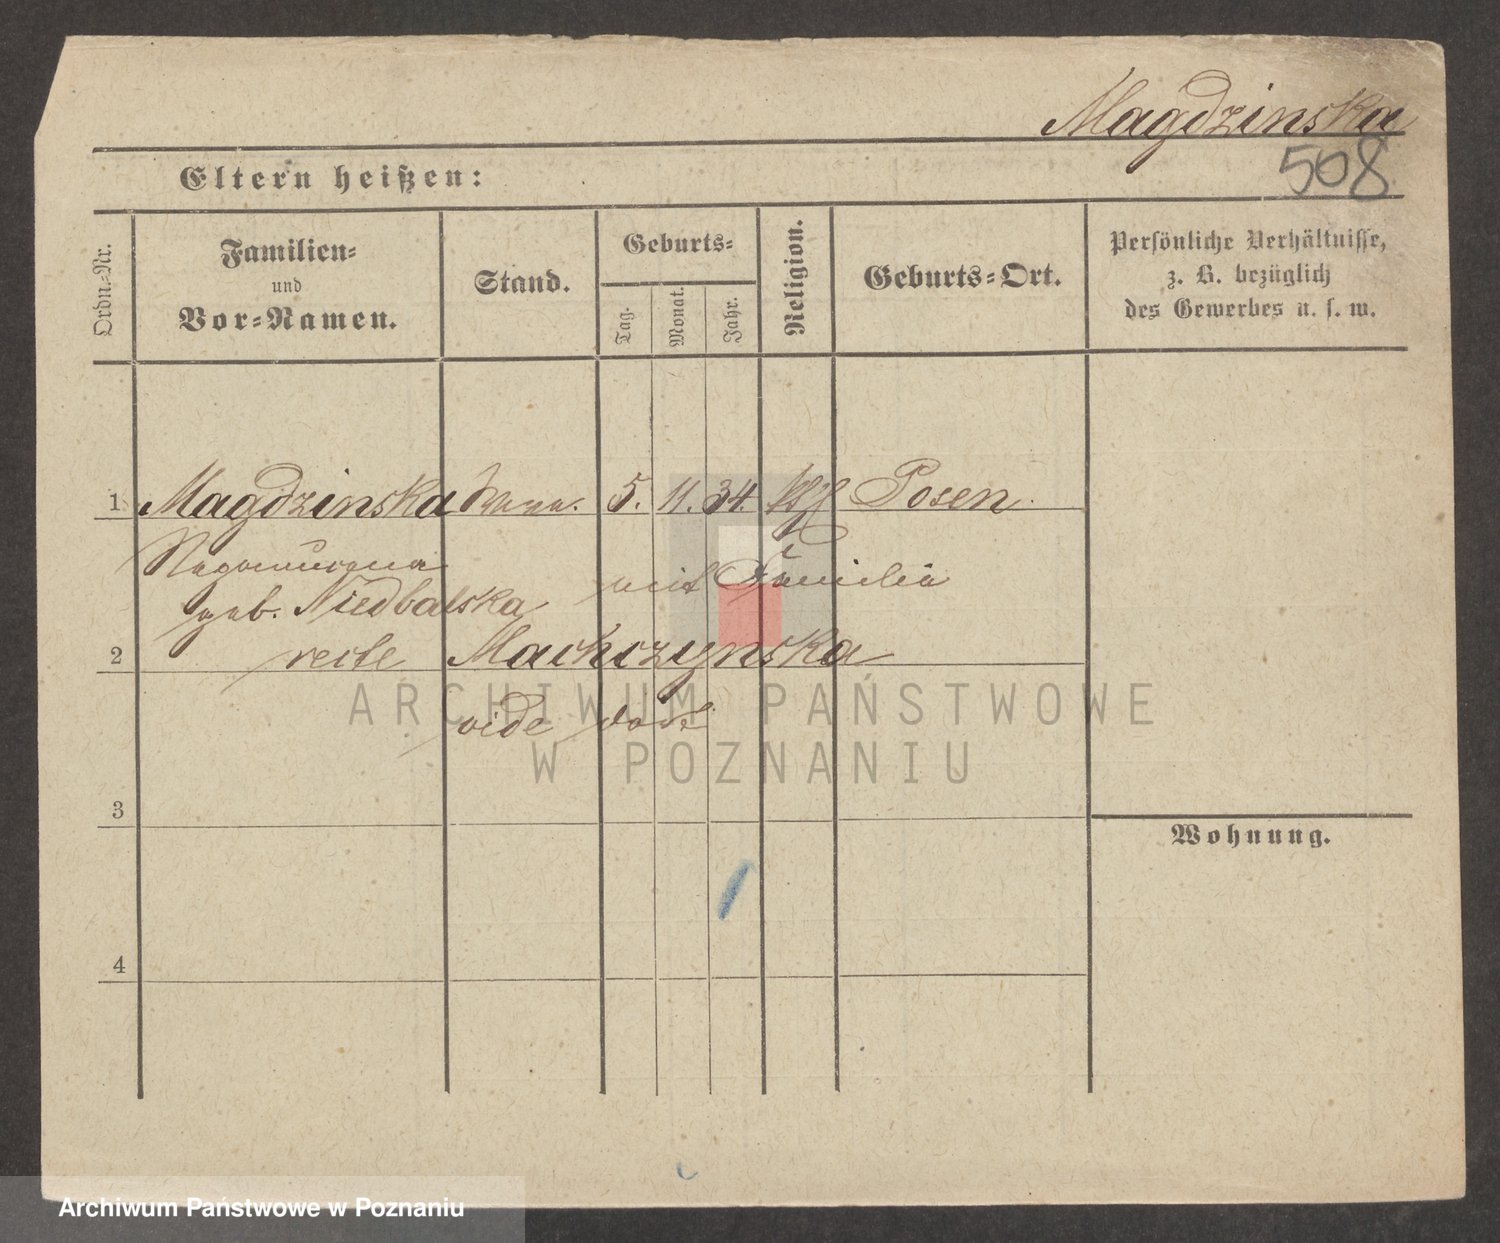 Magdzinska
508
Eltern heißen:
Ordn.-Nr.
Familien-
und
Vor-Namen.
Stand.
Geburts-
Tag.
Monat.
Jahr.
Religion.
Geburts-Ort.
Persönliche Verhältnisse,
z. B. bezüglich
des Gewerbes u. s. w.
1 Magdzinska 5. 11. 34. kth Posen.
geb. Niedbalska mit Familie
2 recte Machczynska
vide dort
3
Wohnung.
4
ARCHIWUM PAŃSTWOWE
W POZNANIU
Archiwum Państwowe w Poznaniu